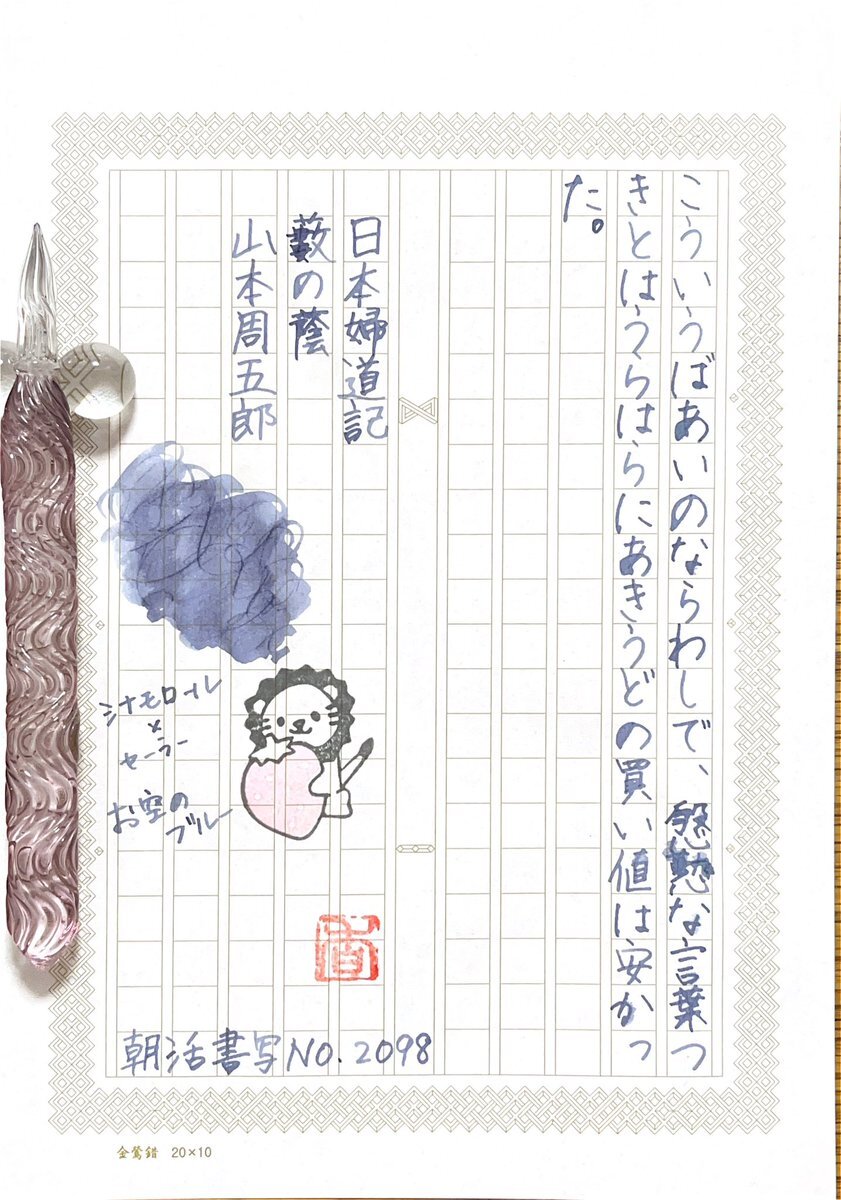 こういうばあいのならわしで、慇懃な言葉つ
きとはうらはらにあきうどの買い値は安かっ
た。
日本婦道記
藪の蔭
山本周五郎
シナモロール
×
セーラー
お空の
ブルー
朝活書写NO.2098
金鶯錯 20×10